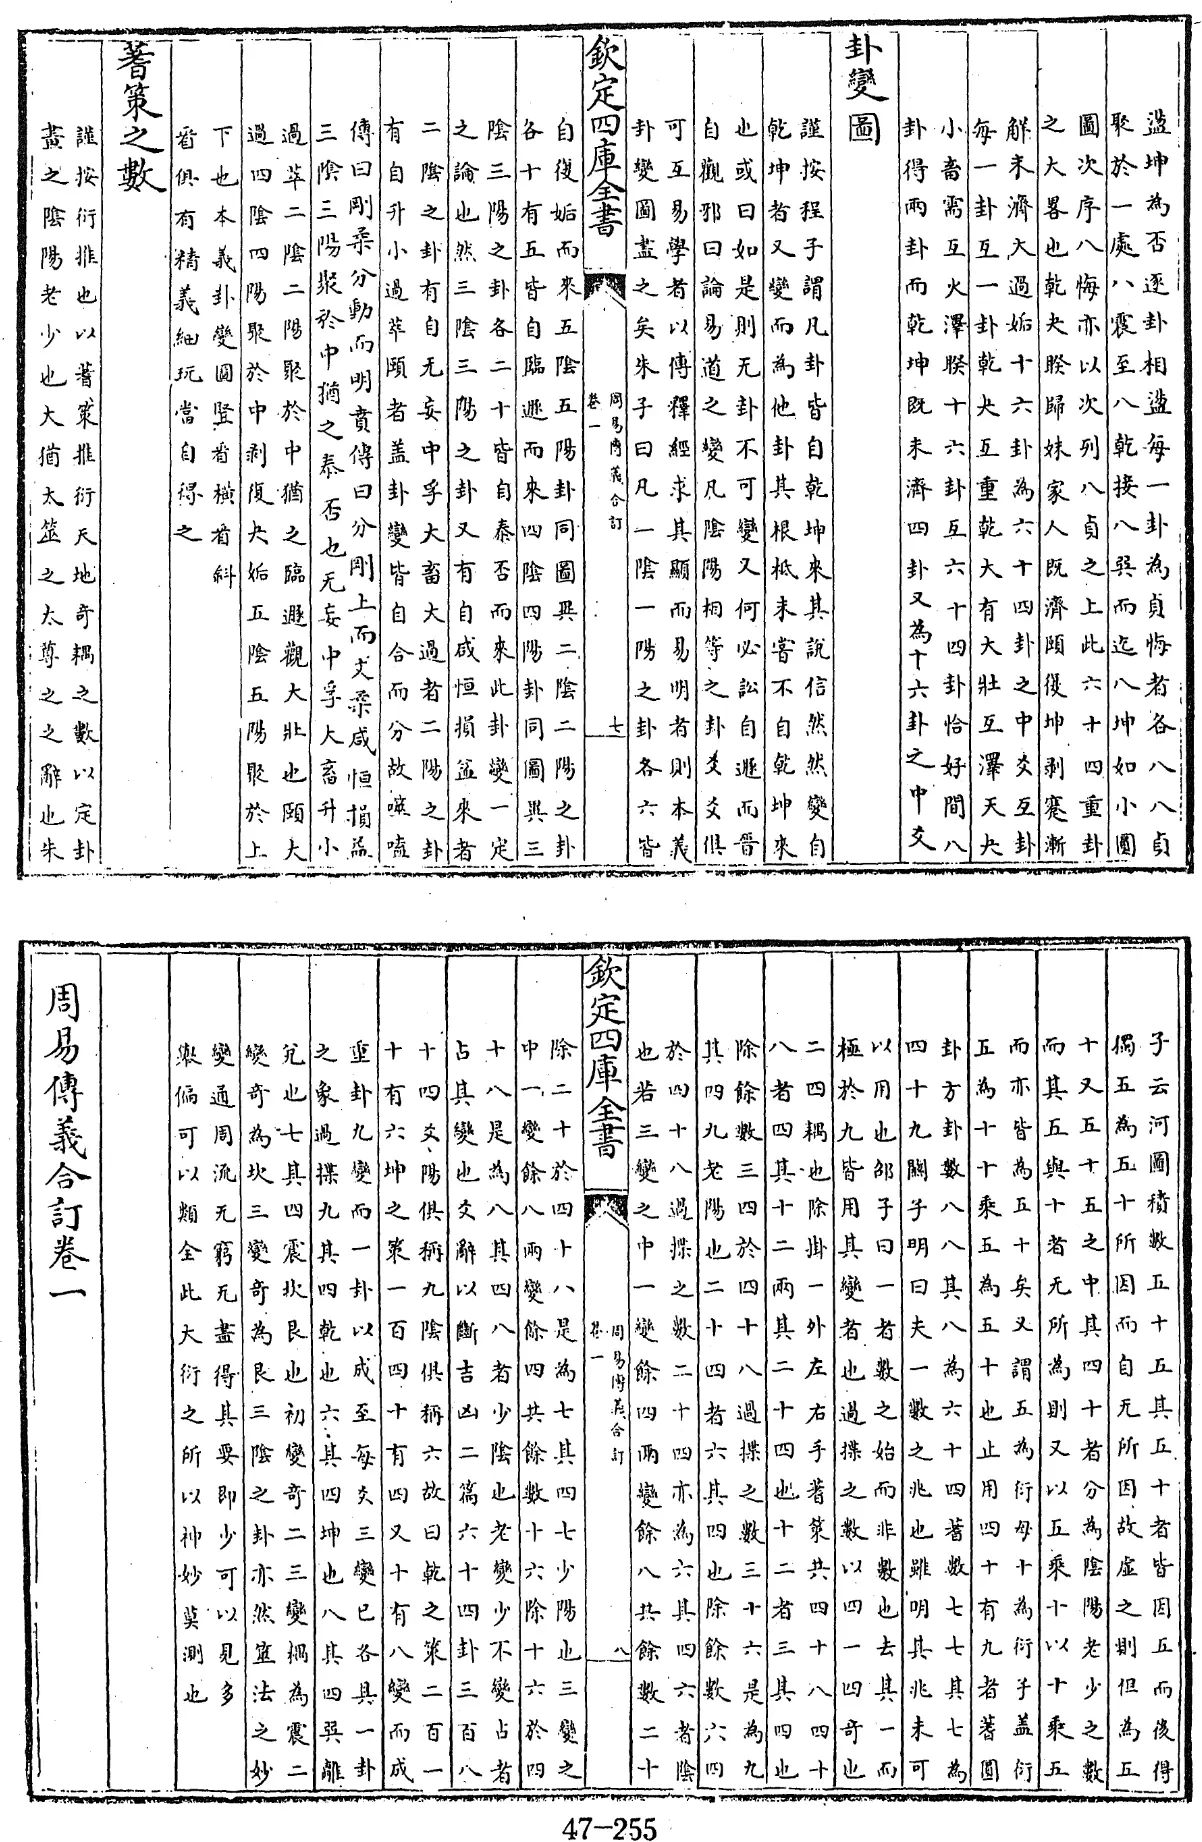 盪坤為否逐卦相盪每一卦為貞悔者各八八貞
聚於一處八震至八乾接八巽而迄八坤如小圓
圖次序八悔亦以次列八貞之上此六十四重卦
之大畧也乾夬睽歸妹家人既濟頤復坤剥蹇漸
解未濟大過姤十六卦為六十四卦之中爻互卦
每一卦互一卦乾夬互重乾大有大壯互澤天夬
小畜需互火澤睽十六卦互六十四卦恰好間八
卦得兩卦而乾坤既未濟四卦又為十六卦之中爻
卦變圖
謹按程子謂凡卦皆自乾坤來其說信然然變自
乾坤者又變而為他卦其根柢未甞不自乾坤來
也或曰如是則无卦不可變又何必訟自遯而晉
自觀邪曰論易道之變凡陰陽相等之卦爻爻俱
可互易學者以傳釋經求其顯而易明者則本義
卦變圖盡之矣朱子曰凡一陰一陽之卦各六皆
欽定四庫全書
周易傳義合訂
卷一
七
自復姤而來五陰五陽卦同圖異二陰二陽之卦
各十有五皆自臨遯而來四陰四陽卦同圖異三
陰三陽之卦各二十皆自泰否而來此卦變一定
之論也然三陰三陽之卦又有自咸恒損益來者
二陰之卦有自无妄中孚大畜大過者二陽之卦
有自升小過萃頤者盖卦變皆自合而分故噬嗑
傳曰剛柔分動而明賁傳曰分剛上而文柔咸恒損益
三陰三陽聚於中猶之泰否也无妄中孚大畜升小
過萃二陰二陽聚於中猶之臨遯觀大壯也頤大
過四陰四陽聚於中剥復夬姤五陰五陽聚於上
下也本義卦變圖竪看横看斜
看俱有精義細玩當自得之
蓍策之數
謹按衍推也以蓍策推衍天地奇耦之數以定卦
畫之陰陽老少也大猶太筮之太尊之之辭也朱
子云河圖積數五十五其五十者皆因五而後得
獨五為五十所因而自无所因故虚之則但為五
十又五十五之中其四十者分為陰陽老少之數
而其五與十者无所為則又以五乘十以十乘五
而亦皆為五十矣又謂五為衍母十為衍子盖衍
五為十十乘五為五十也止用四十有九者蓍圓
卦方卦數八八其八為六十四蓍數七七其七為
四十九關子明曰夫一數之兆也雖明其兆未可
以用也邵子曰一者數之始而非數也去其一而
極於九皆用其變者也過揲之數以四一四奇也
二四耦也除掛一外左右手蓍策共四十八四十
八者四其十二兩其二十四也十二者三其四也
除餘數三四於四十八過揲之數三十六是為九
其四九老陽也二十四者六其四也除餘數六四
於四十八過揲之數二十四亦為六其四六者陰
也若三變之中一變餘四兩變餘八共餘數二十
欽定四庫全書
周易傳義合訂
卷一
八
除二十於四十八是為七其四七少陽也三變之
中一變餘八兩變餘四共餘數十六除十六於四
十八是為八其四八者少陰也老變少不變占者
占其變也爻辭以斷吉凶二篇六十四卦三百八
十四爻陽俱稱九陰俱稱六故曰乾之策二百一
十有六坤之策一百四十有四又十有八變而成
重卦九變而一卦以成至每爻三變已各具一卦
之象過揲九其四乾也六其四坤也八其四巽離
兌也七其四震坎艮也初變奇二三變耦為震二
變奇為坎三變奇為艮三陰之卦亦然筮法之妙
變通周流无窮无盡得其要即少可以見多
舉偏可以類全此大衍之所以神妙莫測也
周易傳義合訂卷一
47-255